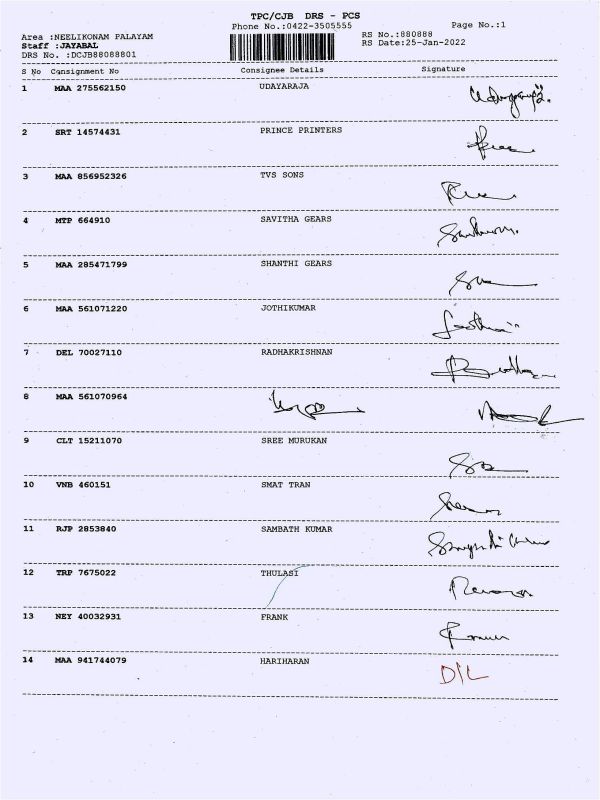 TPC/CJB DRS - PCS
Phone No.:0422-3505555 Page No.:1
Area :NEELIKONAM PALAYAM RS No.:880888
Staff :JAYABAL RS Date:25-Jan-2022
DRS No. :DCJB88088801
S No Consignment No Consignee Details Signature
1 MAA 275562150 UDAYARAJA
2 SRT 14574431 PRINCE PRINTERS
3 MAA 856952326 TVS SONS
4 MTP 664910 SAVITHA GEARS
5 MAA 285471799 SHANTHI GEARS
6 MAA 561071220 JOTHIKUMAR
7 DEL 70027110 RADHAKRISHNAN
8 MAA 561070964
9 CLT 15211070 SREE MURUKAN
10 VNB 460151 SMAT TRAN
11 RJP 2853840 SAMBATH KUMAR
12 TRP 7675022 THULASI
13 NEY 40032931 FRANK
14 MAA 941744079 HARIHARAN D/L